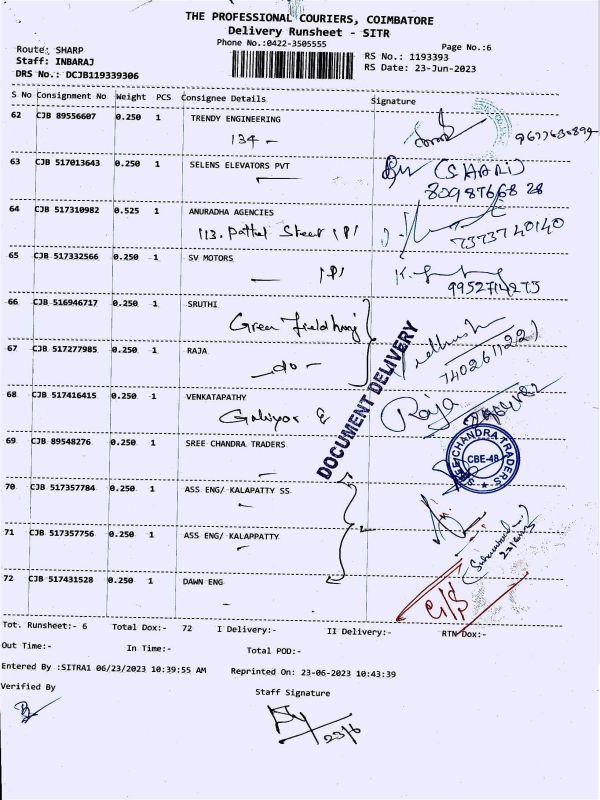 THE PROFESSIONAL COURIERS, COIMBATORE
Delivery Runsheet - SITR
Phone No.:0422-3505555
Page No.:6
Route: SHARP
Staff: INBARAJ
DRS No.: DCJB119339306
RS No.: 1193393
RS Date: 23-Jun-2023
S No Consignment No Weight PCS Consignee Details Signature
62 CJB 89556607 0.250 1 TRENDY ENGINEERING
134 -
63 CJB 517013643 0.250 1 SELENS ELEVATORS PVT
(SHARI)
64 CJB 517310982 0.525 1 ANURADHA AGENCIES
113. Street
7373740140
65 CJB 517332566 0.250 1 SV MOTORS
9952714275
66 CJB 516946717 0.250 1 SRUTHI
Green field
67 CJB 517277985 0.250 1 RAJA
-do-
DOCUMENT DELIVERY
68 CJB 517416415 0.250 1 VENKATAPATHY
Raja
69 CJB 89548276 0.250 1 SREE CHANDRA TRADERS
SREE CHANDRA TRADERS
CBE-48
70 CJB 517357784 0.250 1 ASS ENG/ KALAPATTY SS
71 CJB 517357756 0.250 1 ASS ENG/ KALAPPATTY
72 CJB 517431528 0.250 1 DAWN ENG
Tot. Runsheet:- 6 Total Dox:- 72 I Delivery:- II Delivery:- RTN Dox:-
Out Time:- In Time:- Total POD:-
Entered By :SITRA1 06/23/2023 10:39:55 AM Reprinted On: 23-06-2023 10:43:39
Verified By
Staff Signature
23/6